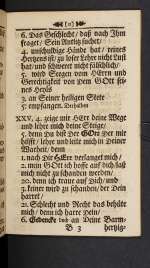 ( 21 )
6. Das Geschlecht / daß nach Ihm
fraget / Sein Antlitz suchet /
4. unschuldige Hände hat / reines
Hertzens ist / zu loser Lehre nicht Lust
hat / und schweret nicht fälschlich /
5. wird Segen vom HErrn und
Gerechtigkeit von Dem GOtt sei-
nes Heyls
3. an Seiner heiligen Stete
5. empfangen.
XXV. 4. zeige mir HErr deine Wege
und lehre mich deine Steige;
5. denn Du bist Der GOtt Der mir
hilfft / lehre und leite mich in Deiner
Warheit / denn
1. nach Dir HErr verlanget mich /
2. mein GOtt ich hoffe auf dich / laß
mich nicht zu schanden werden /
20. denn ich traue auf Dich / und
3. keiner wird zu schanden / der Dein
harret /
21. Schlecht und Recht das behüte
mich / denn ich harre dein /
6. Gedencke an Deine Barm-
B 3 hertzig-